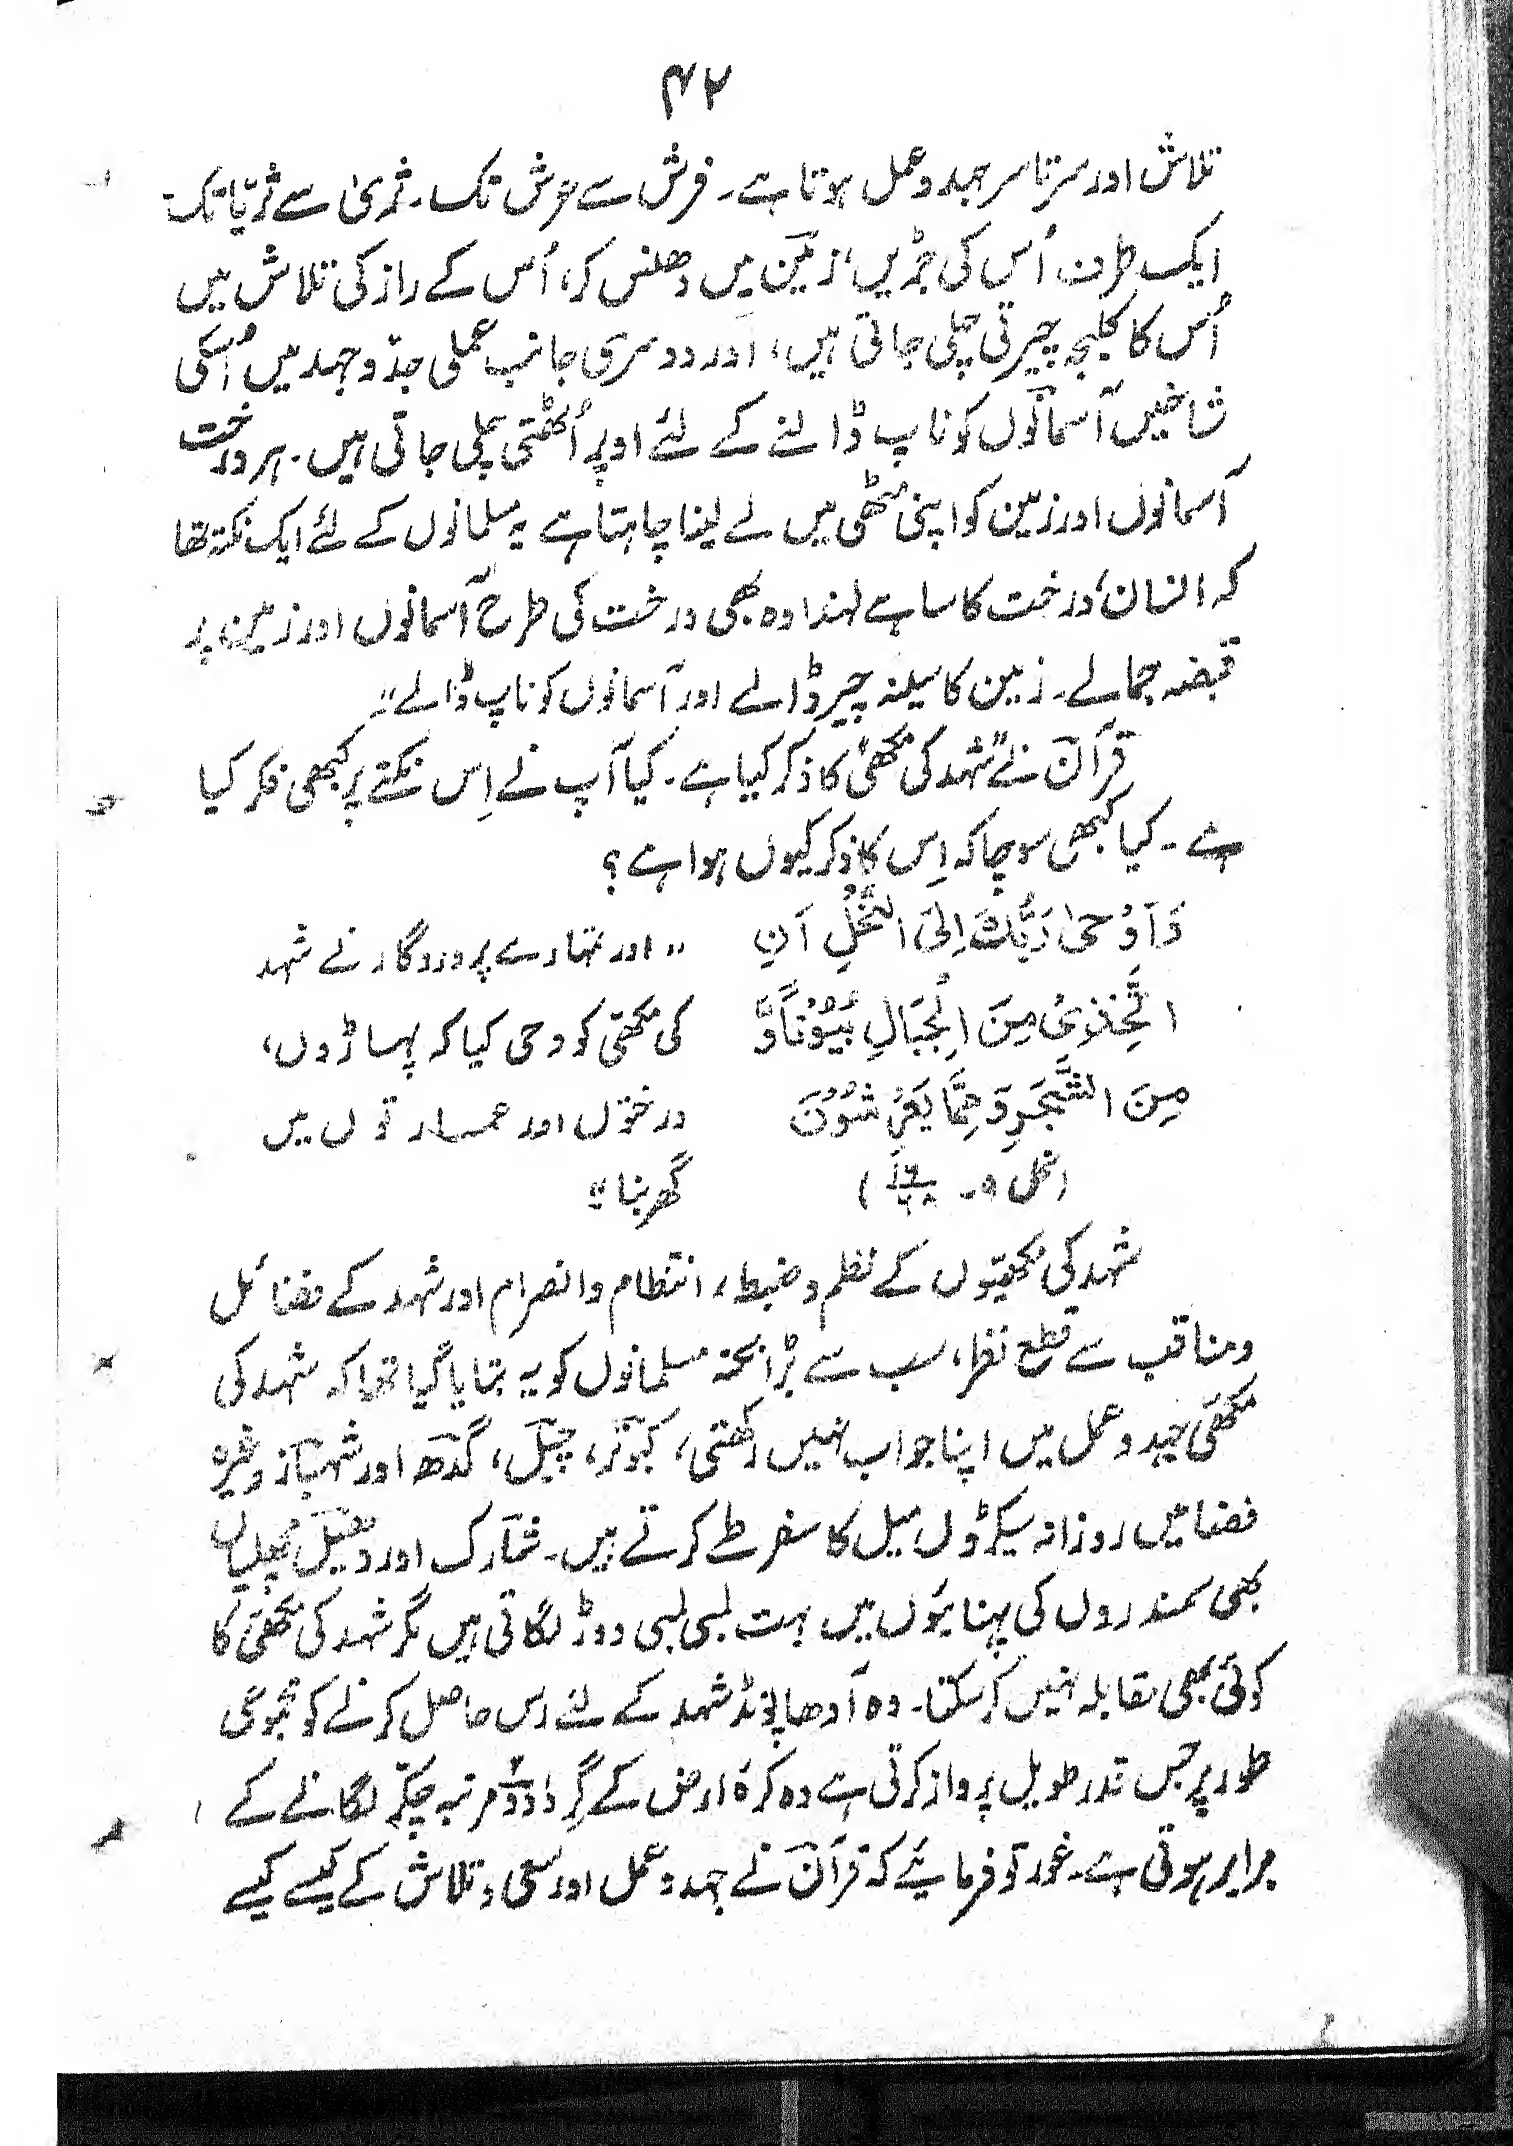 ۴۲
تلاش اور سرتاسر جہد و عمل ہوتا ہے۔ فرش سے عرش تک۔ ثریٰ سے ثریّا تک۔
ایک طرف اُس کی جڑیں، زمین میں دھنس کر، اُس کے راز کی تلاش میں
اُس کا کلیجہ چیرتی چلی جاتی ہیں، اور دوسری جانب عملی جدوجہد میں اُسکی
شاخیں آسمانوں کو ناپ ڈالنے کے لئے اوپر اُٹھتی چلی جاتی ہیں۔ ہر درخت
آسمانوں اور زمین کو اپنی مٹھی میں لے لینا چاہتا ہے یہ مسلمانوں کے لئے ایک نکتہ تھا
کہ انسان، درخت کا سا ہے لہٰذا وہ بھی درخت کی طرح آسمانوں اور زمین پر
قبضہ جمالے۔ زمین کا سینہ چیر ڈالے اور آسمانوں کو ناپ ڈالے"۔
قرآن نے "شہد کی مکھی" کا ذکر کیا ہے۔ کیا آپ نے اِس نکتے پر کبھی فکر کیا
ہے۔ کیا کبھی سوچا کہ اِس کا ذکر کیوں ہوا ہے؟
وَاَوْحیٰ رَبُّكَ اِلَی النَّحْلِ اَنِ "اور تمہارے پروردگار نے شہد
اتَّخِذِیْ مِنَ الْجِبَالِ بُیُوْتًا وَّ کی مکھی کو وحی کیا کہ پہاڑوں،
مِنَ الشَّجَرِ وَ مِمَّا یَعْرِشُوْنَ درختوں اور عمارتوں میں
(نحل ۹۔ ۱۶/۶۸) گھر بنا"۔
شہد کی مکھیوں کے نظم و ضبط، انتظام و انصرام اور شہد کے فضائل
و مناقب سے قطع نظر، سب سے بڑا نکتہ مسلمانوں کو یہ بتایا گیا تھا کہ شہد کی
مکھی جہد و عمل میں اپنا جواب نہیں رکھتی، کبوتر، چیل، گدھ اور شہباز وغیرہ
فضا میں روزانہ سیکڑوں میل کا سفر طے کرتے ہیں۔ شارک اور وھیل مچھلیاں
بھی سمندروں کی پہنائیوں میں بہت لمبی لمبی دوڑ لگاتی ہیں مگر شہد کی مکھی کا
کوئی بھی مقابلہ نہیں کر سکتا۔ وہ آدھا پونڈ شہد کے لئے رس حاصل کرنے کو مجموعی
طور پر جس قدر طویل پرواز کرتی ہے وہ کرۂ ارض کے گرد دو مرتبہ چکّر لگانے کے
برابر ہوتی ہے۔ غور تو فرمائیے کہ قرآن نے جہد و عمل اور سعی و تلاش کے کیسے کیسے